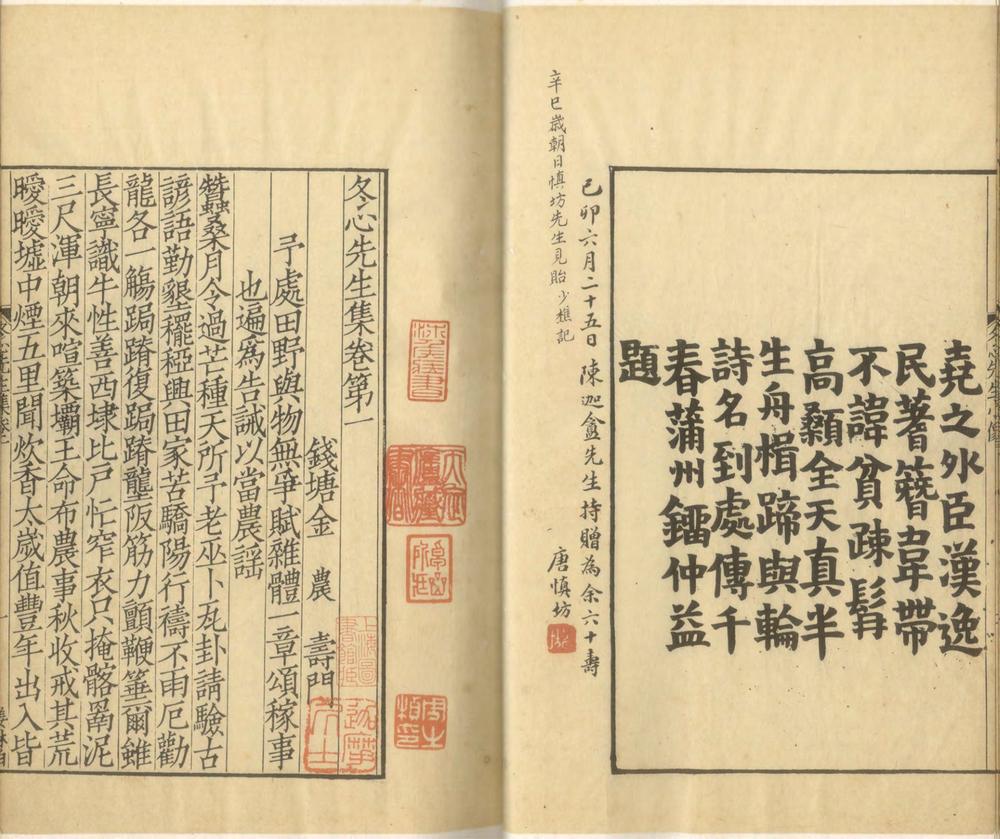 堯之外臣漢逸
民蓍簪韋帶
不諱貧疎髯
高顙全天真半
生舟楫蹄與輪
詩名到處傳千
春蒲州鐂仲益
題
己卯六月二十五日陳迦盦先生持贈為余六十壽 唐慎坊
辛巳歲朝日慎坊先生見貽少樵記
冬心先生集卷第一
錢塘金 農 壽門
予處田野與物無爭賦雜體一章頌稼事
也遍為告誡以當農謡
蠶桑月令過芒種天所予老巫卜瓦卦請驗古
諺語勤墾穲稏興田家苦驕陽行禱不雨厄勸
龍各一觴跼蹐復跼蹐壟阪筋力顫鞭箠爾雖
長寧識牛性善西埭比戸忙窄衣只掩髂罱泥
三尺渾朝來喧築壩王命布農事秋收戒其荒
曖曖墟中煙五里聞炊香太歲值豐年出入皆